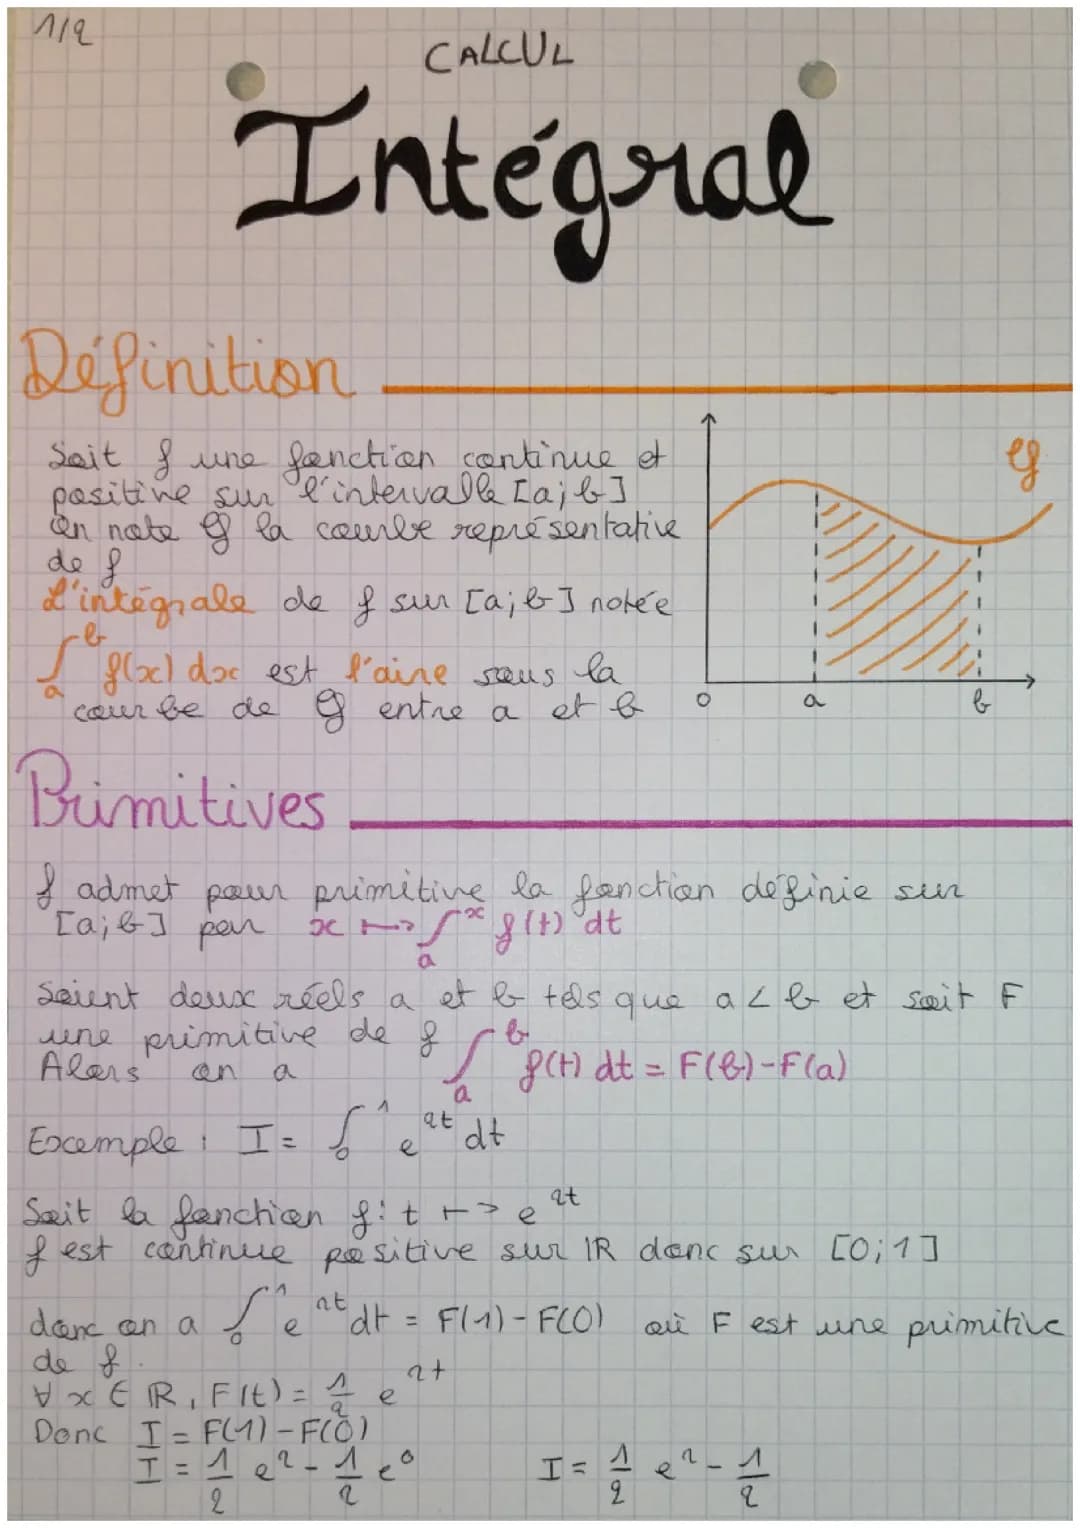 1/2
CALCUL
Intégral
Définition
Soit f une fonction continue et
positive sur l'intervalle [a;b]
On note Cf la courbe représentative
de f
L'intégrale de f sur [a;b] notée
∫_a^b f(x) dx est l'aire sous la
courbe de Cf entre a et b
Cf
0 a b
Primitives
f admet pour primitive la fonction définie sur
[a;b] par x ↦ ∫_a^x f(t) dt
Soient deux réels a et b tels que a < b et soit F
une primitive de f
Alors on a ∫_a^b f(t) dt = F(b)-F(a)
Exemple : I = ∫_0^1 e^{2t} dt
Soit la fonction f: t ↦ e^{2t}
f est continue positive sur ℝ donc sur [0;1]
donc on a ∫_0^1 e^{2t} dt = F(1)-F(0) où F est une primitive
de f.
∀ x ∈ ℝ, F(t) = 1/2 e^{2t}
Donc I = F(1)-F(0)
I = 1/2 e² - 1/2 e⁰ I = 1/2 e² - 1/2